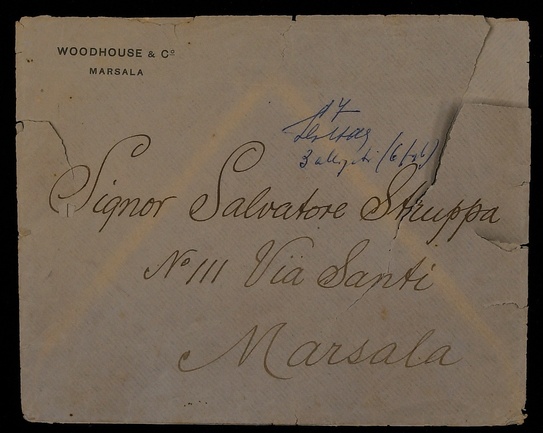 WOODHOUSE & Cº
MARSALA
3 alleg.ti (6/06)
Signor Salvatore Struppa
Nº 111 Via Santi
Marsala